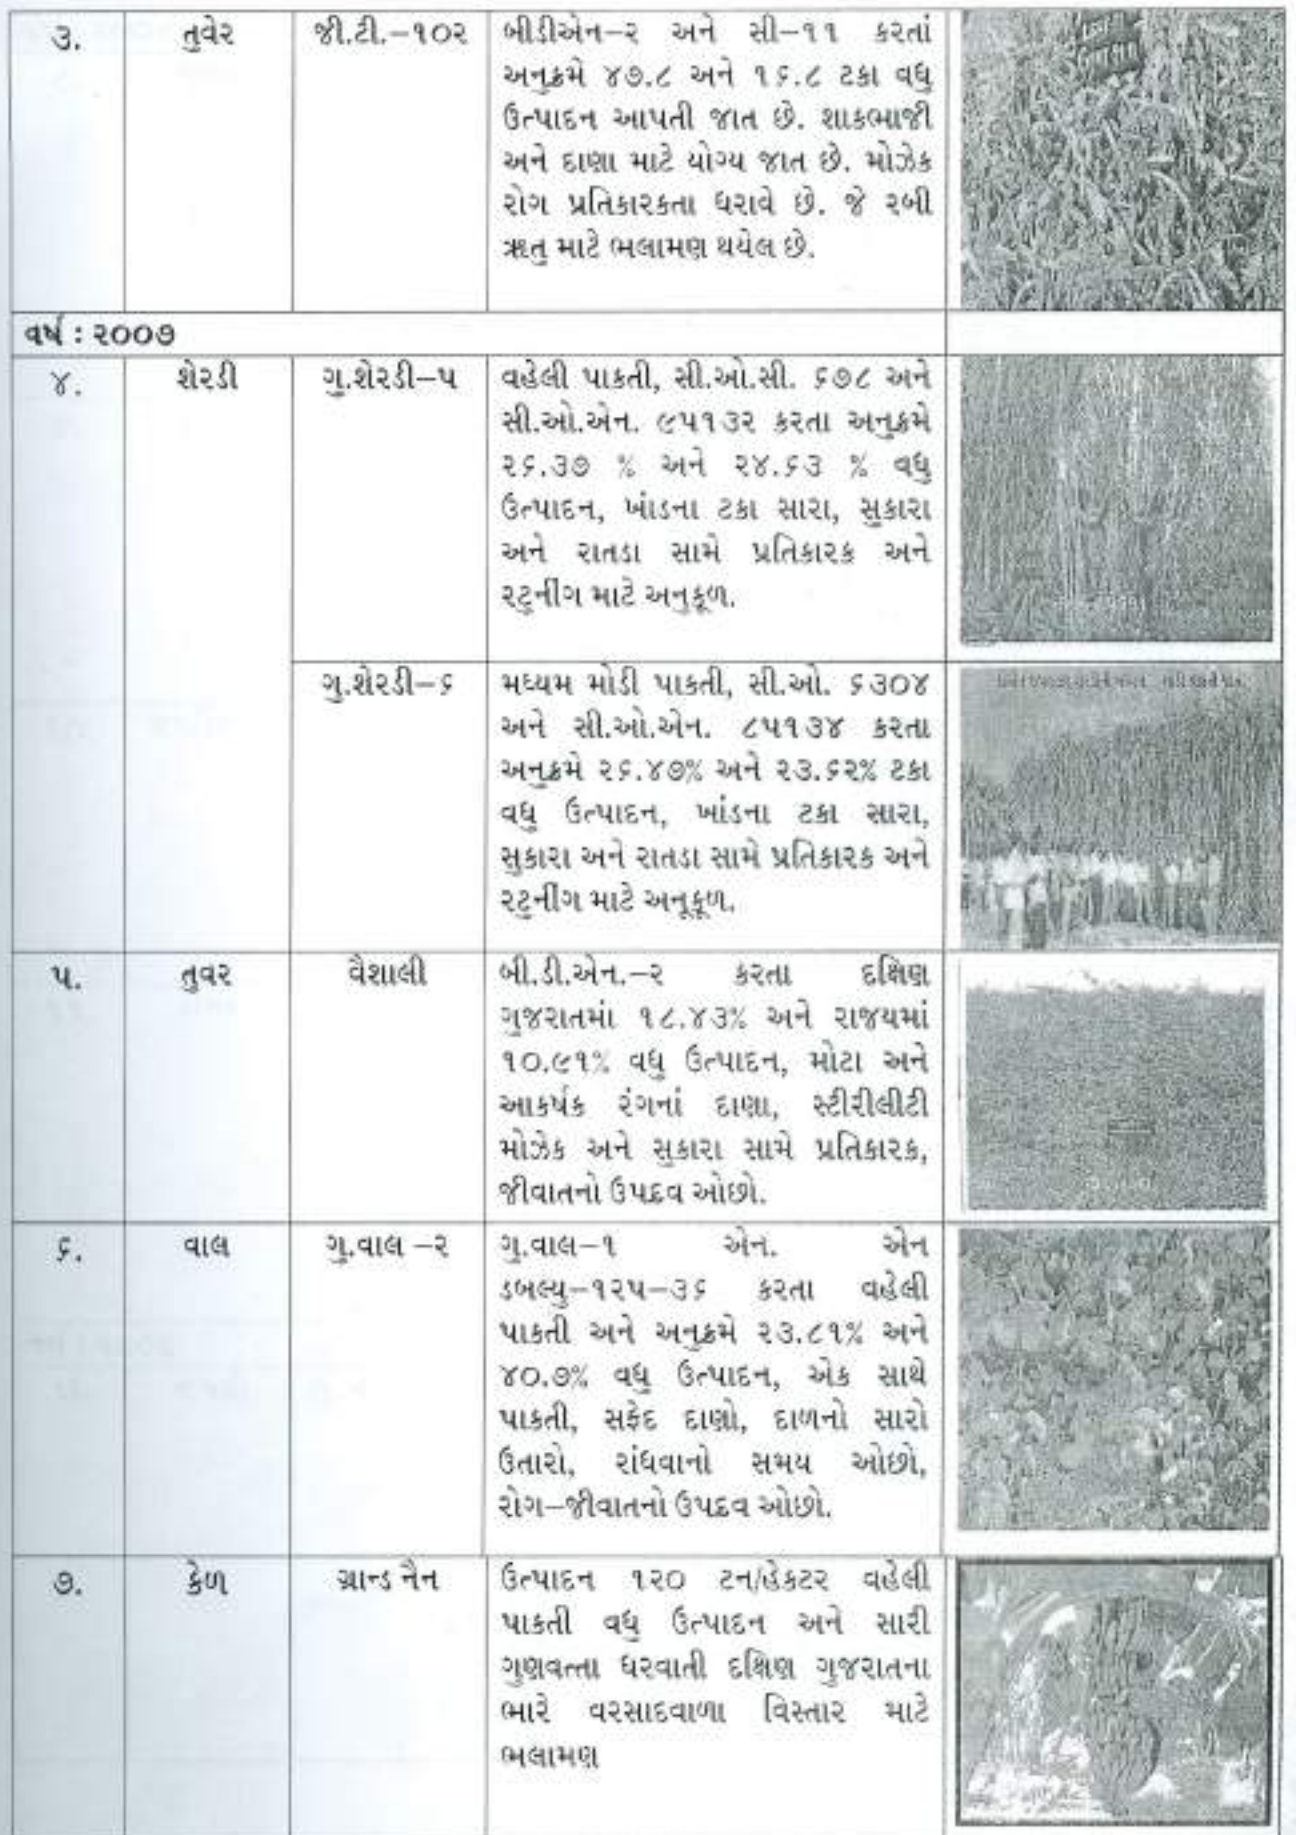 ૩. તુવેર જી.ટી.–૧૦૨ બીડીએન–૨ અને સી–૧૧ કરતાં
અનુક્રમે ૪૭.૮ અને ૧૬.૮ ટકા વધુ
ઉત્પાદન આપતી જાત છે. શાકભાજી
અને દાણા માટે યોગ્ય જાત છે. મોઝેક
રોગ પ્રતિકારકતા ધરાવે છે. જે રબી
ઋતુ માટે ભલામણ થયેલ છે.
વર્ષ : ૨૦૦૭
૪. શેરડી ગુ.શેરડી–૫ વહેલી પાકતી, સી.ઓ.સી. ૬૭૮ અને
સી.ઓ.એન. ૯૫૧૩૨ કરતા અનુક્રમે
૨૬.૩૭ % અને ૨૪.૬૩ % વધુ
ઉત્પાદન, ખાંડના ટકા સારા, સુકારા
અને રાતડા સામે પ્રતિકારક અને
રટુનીંગ માટે અનુકૂળ.
ગુ.શેરડી–૬ મધ્યમ મોડી પાકતી, સી.ઓ. ૬૩૦૪
અને સી.ઓ.એન. ૮૫૧૩૪ કરતા
અનુક્રમે ૨૬.૪૭% અને ૨૩.૬૨% ટકા
વધુ ઉત્પાદન, ખાંડના ટકા સારા,
સુકારા અને રાતડા સામે પ્રતિકારક અને
રટુનીંગ માટે અનૂકૂળ.
૫. તુવર વૈશાલી બી.ડી.એન.–૨ કરતા દક્ષિણ
ગુજરાતમાં ૧૮.૪૩% અને રાજયમાં
૧૦.૯૧% વધુ ઉત્પાદન, મોટા અને
આકર્ષક રંગનાં દાણા, સ્ટીરીલીટી
મોઝેક અને સુકારા સામે પ્રતિકારક,
જીવાતનો ઉપદ્રવ ઓછો.
૬. વાલ ગુ.વાલ –૨ ગુ.વાલ–૧ એન. એન
ડબલ્યુ–૧૨૫–૩૬ કરતા વહેલી
પાકતી અને અનુક્રમે ૨૩.૮૧% અને
૪૦.૭% વધુ ઉત્પાદન, એક સાથે
પાકતી, સફેદ દાણો, દાળનો સારો
ઉતારો, રાંધવાનો સમય ઓછો,
રોગ–જીવાતનો ઉપદ્રવ ઓછો.
૭. કેળ ગ્રાન્ડ નૈન ઉત્પાદન ૧૨૦ ટન/હેકટર વહેલી
પાકતી વધુ ઉત્પાદન અને સારી
ગુણવત્તા ધરવાતી દક્ષિણ ગુજરાતના
ભારે વરસાદવાળા વિસ્તાર માટે
ભલામણ